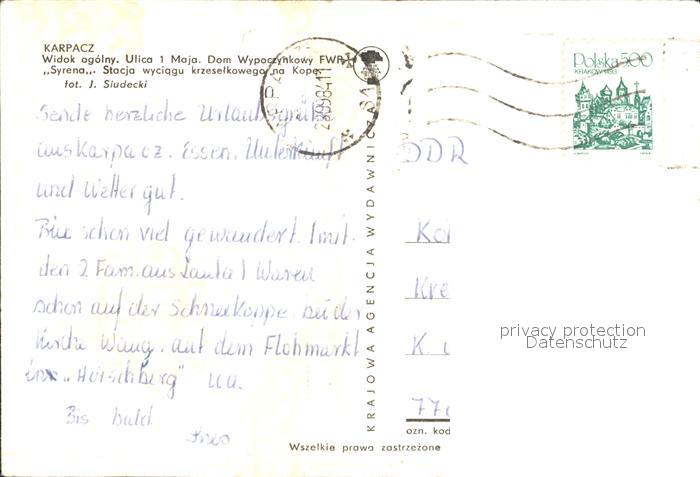 KARPACZ
Widok ogólny. Ulica 1 Maja. Dom Wypoczynkowy FWP
„Syrena„. Stacja wyciągu krzesełkowego na Kopę
fot. J. Siudecki
Sende herzliche Urlaubsgrüße
aus Karpacz. Essen, Unterkunft
und Wetter gut.
Bin schon viel gewandert. (mit
den 2 Fam. aus Lauta) Waren
schon auf der Schneekoppe, bei der
Kirche Wang, auf dem Flohmarkt
in „Hirschberg" u.a.
Bis bald
KRAJOWA AGENCJA WYDAWNICZA
Polska 500
KRAKÓW 1493
DDR
K. 
ozn. kod
Wszelkie prawa zastrzeżone
privacy protection
Datenschutz